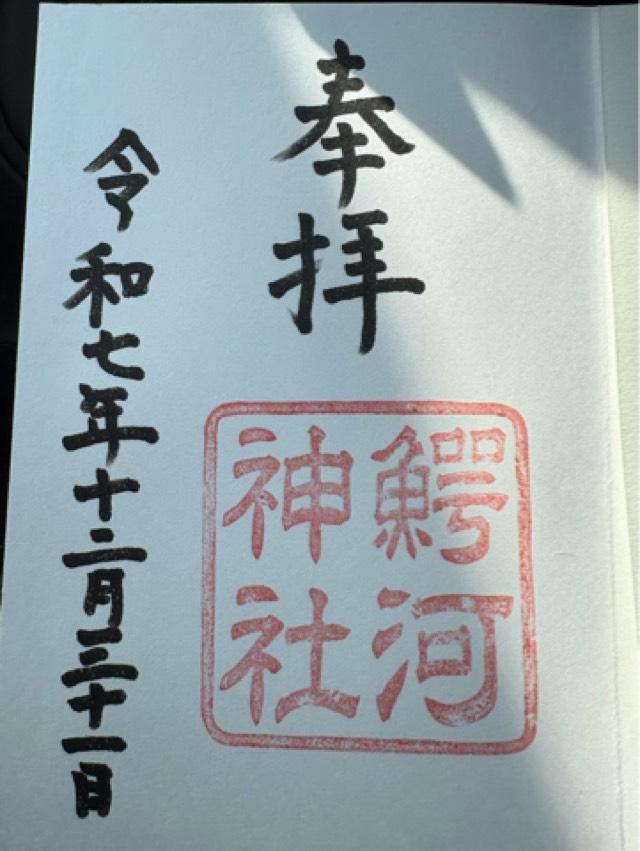 奉拝
鰐河
神社
令和七年十二月三十一日